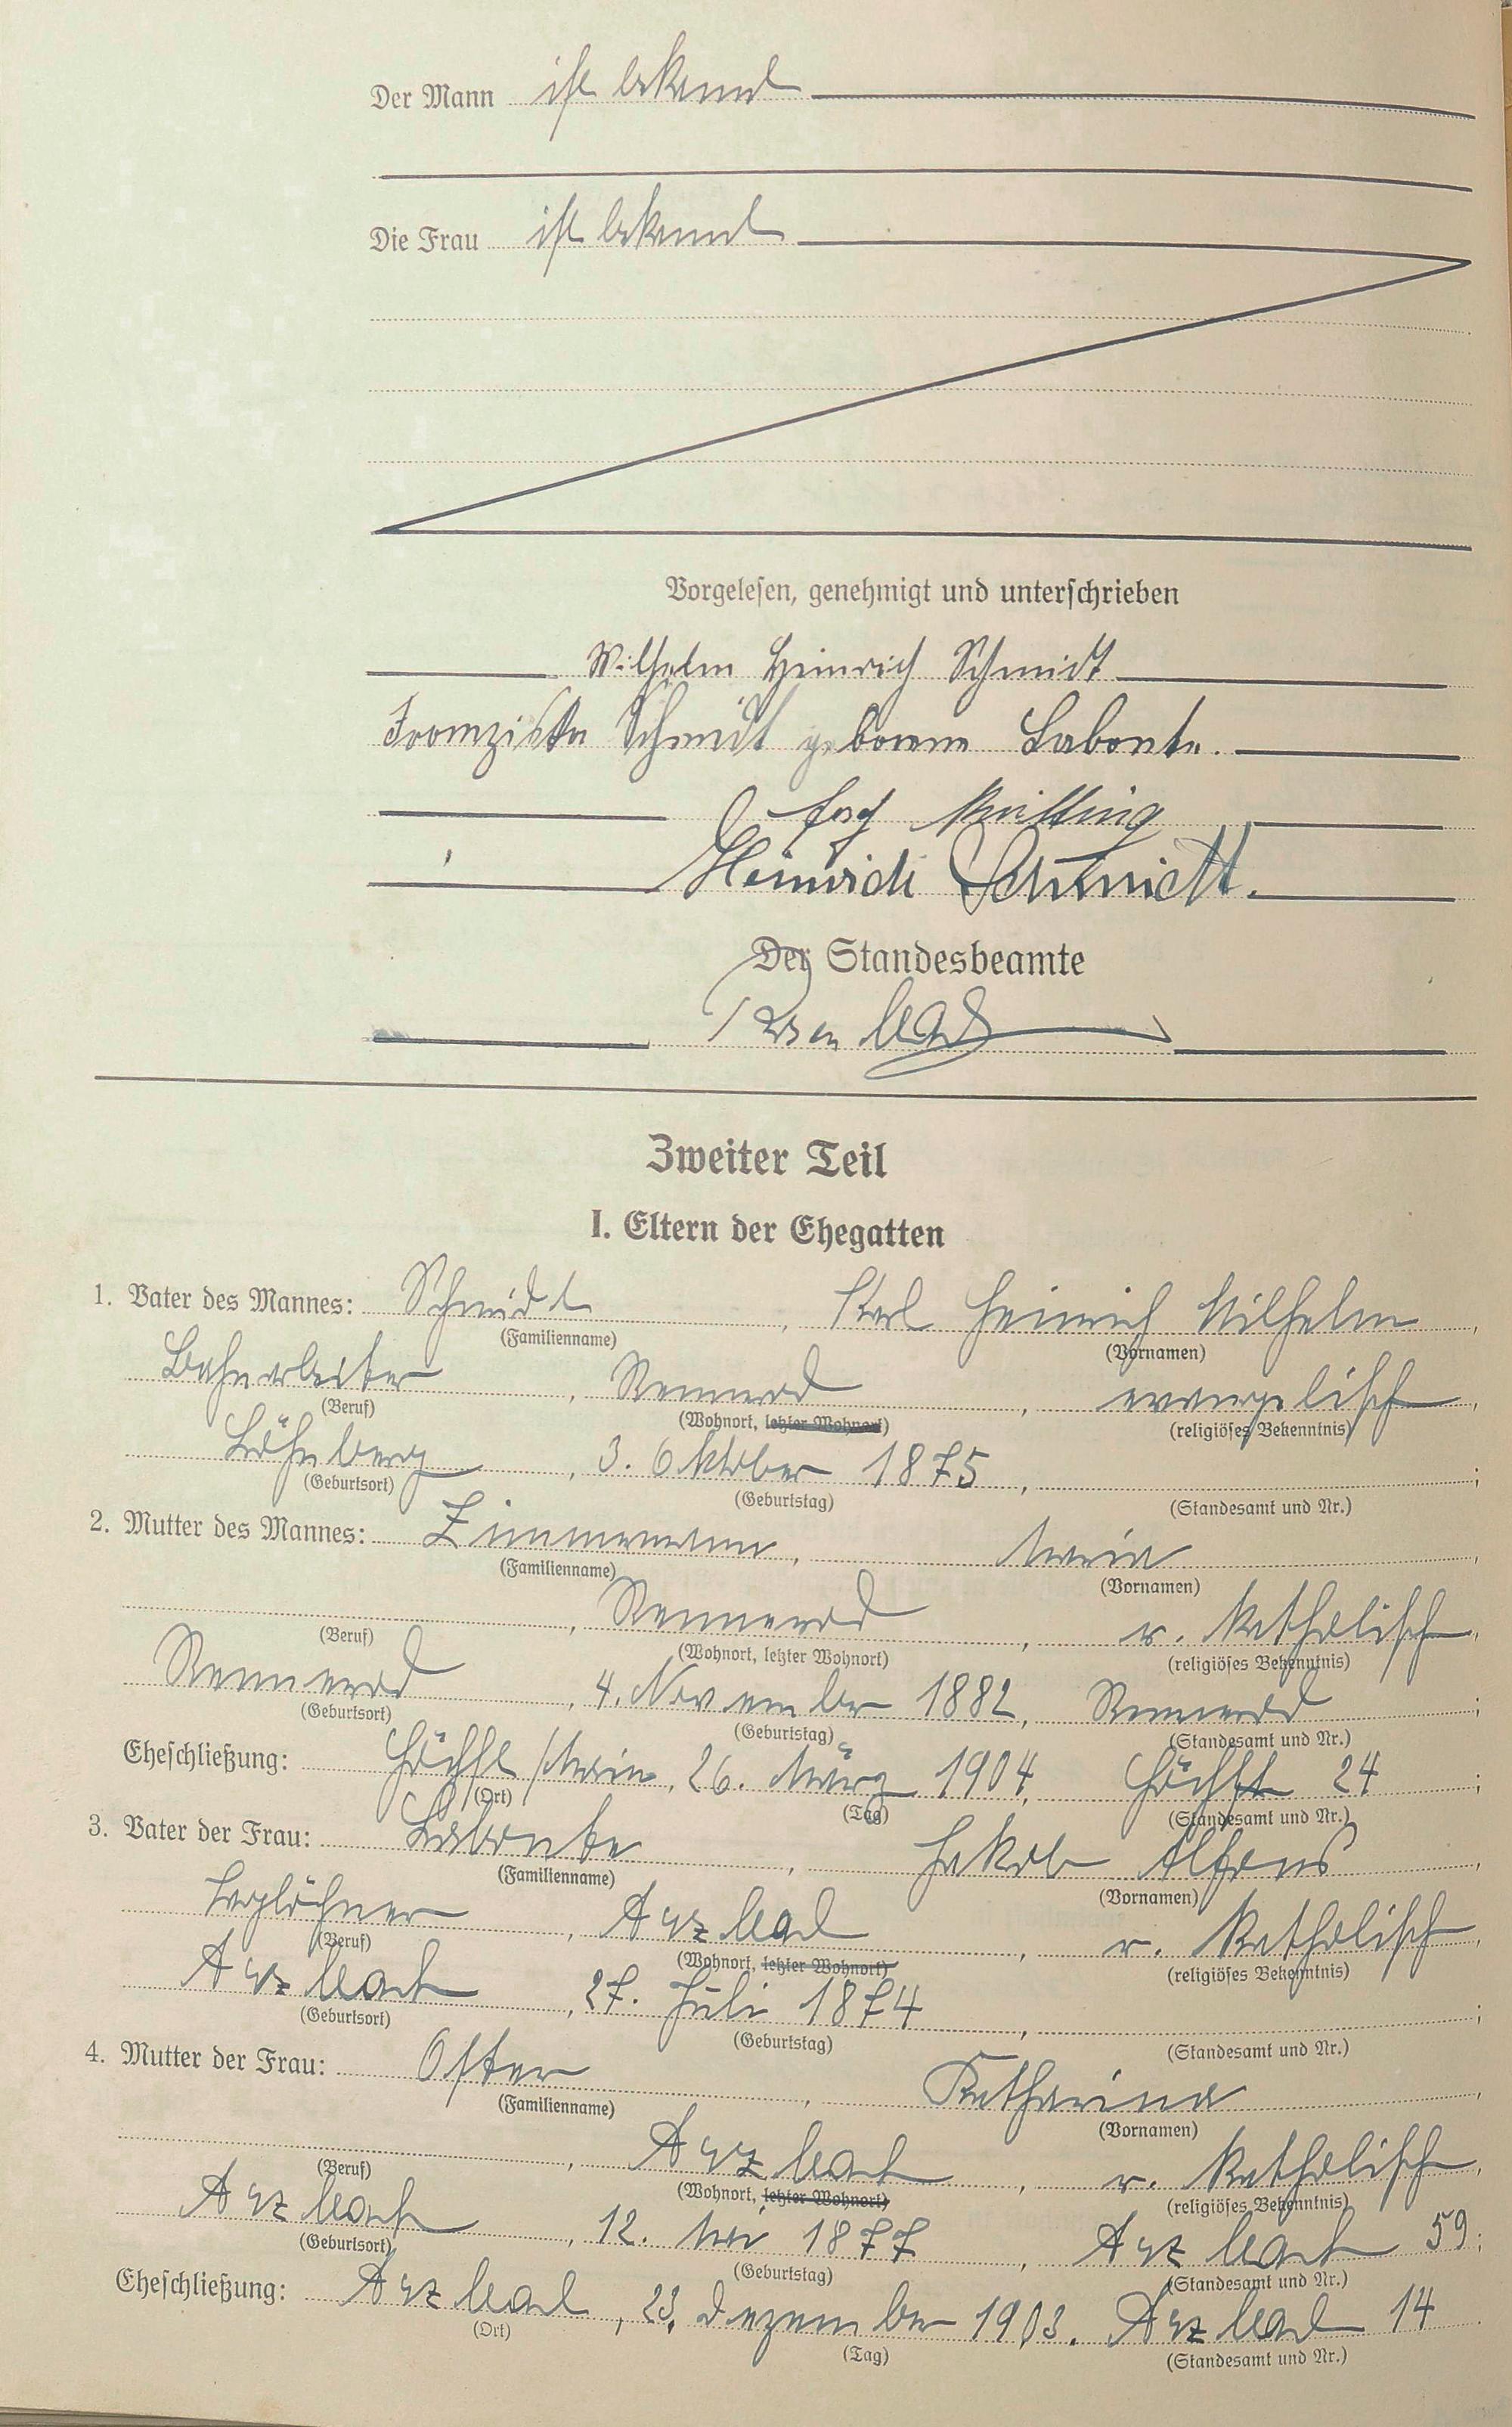 Der Mann ist bekannt
Die Frau ist bekannt
Vorgelesen, genehmigt und unterschrieben
Wilhelm Heinrich Schmidt
Franziska Schmidt geborene Labonte.
Heinrich Schmidt.
Der Standesbeamte
Zweiter Teil
I. Eltern der Ehegatten
1. Vater des Mannes: Schmidt, Karl Heinrich Wilhelm,
(Familienname) (Vornamen)
Bahnarbeiter, Rennerod, evangelisch,
(Beruf) (Wohnort, letzter Wohnort) (religiöses Bekenntnis)
Löhnberg, 3. Oktober 1875,;
(Geburtsort) (Geburtstag) (Standesamt und Nr.)
2. Mutter des Mannes: Zimmermann, Maria,
(Familienname) (Vornamen)
, Rennerod, r. katholisch,
(Beruf) (Wohnort, letzter Wohnort) (religiöses Bekenntnis)
Rennerod, 4. November 1882, Rennerod;
(Geburtsort) (Geburtstag) (Standesamt und Nr.)
Eheschließung: Höchst/Main, 26. März 1904, Höchst 24;
(Ort) (Tag) (Standesamt und Nr.)
3. Vater der Frau: Labonte, Jakob Alfons,
(Familienname) (Vornamen)
Taglöhner, Arzbach, r. katholisch,
(Beruf) (Wohnort, letzter Wohnort) (religiöses Bekenntnis)
Arzbach, 27. Juli 1874,;
(Geburtsort) (Geburtstag) (Standesamt und Nr.)
4. Mutter der Frau: Oster, Katharina,
(Familienname) (Vornamen)
, Arzbach, r. katholisch,
(Beruf) (Wohnort, letzter Wohnort) (religiöses Bekenntnis)
Arzbach, 12. Mai 1877, Arzbach 59;
(Geburtsort) (Geburtstag) (Standesamt und Nr.)
Eheschließung: Arzbach, 23. Dezember 1903. Arzbach 14
(Ort) (Tag) (Standesamt und Nr.)